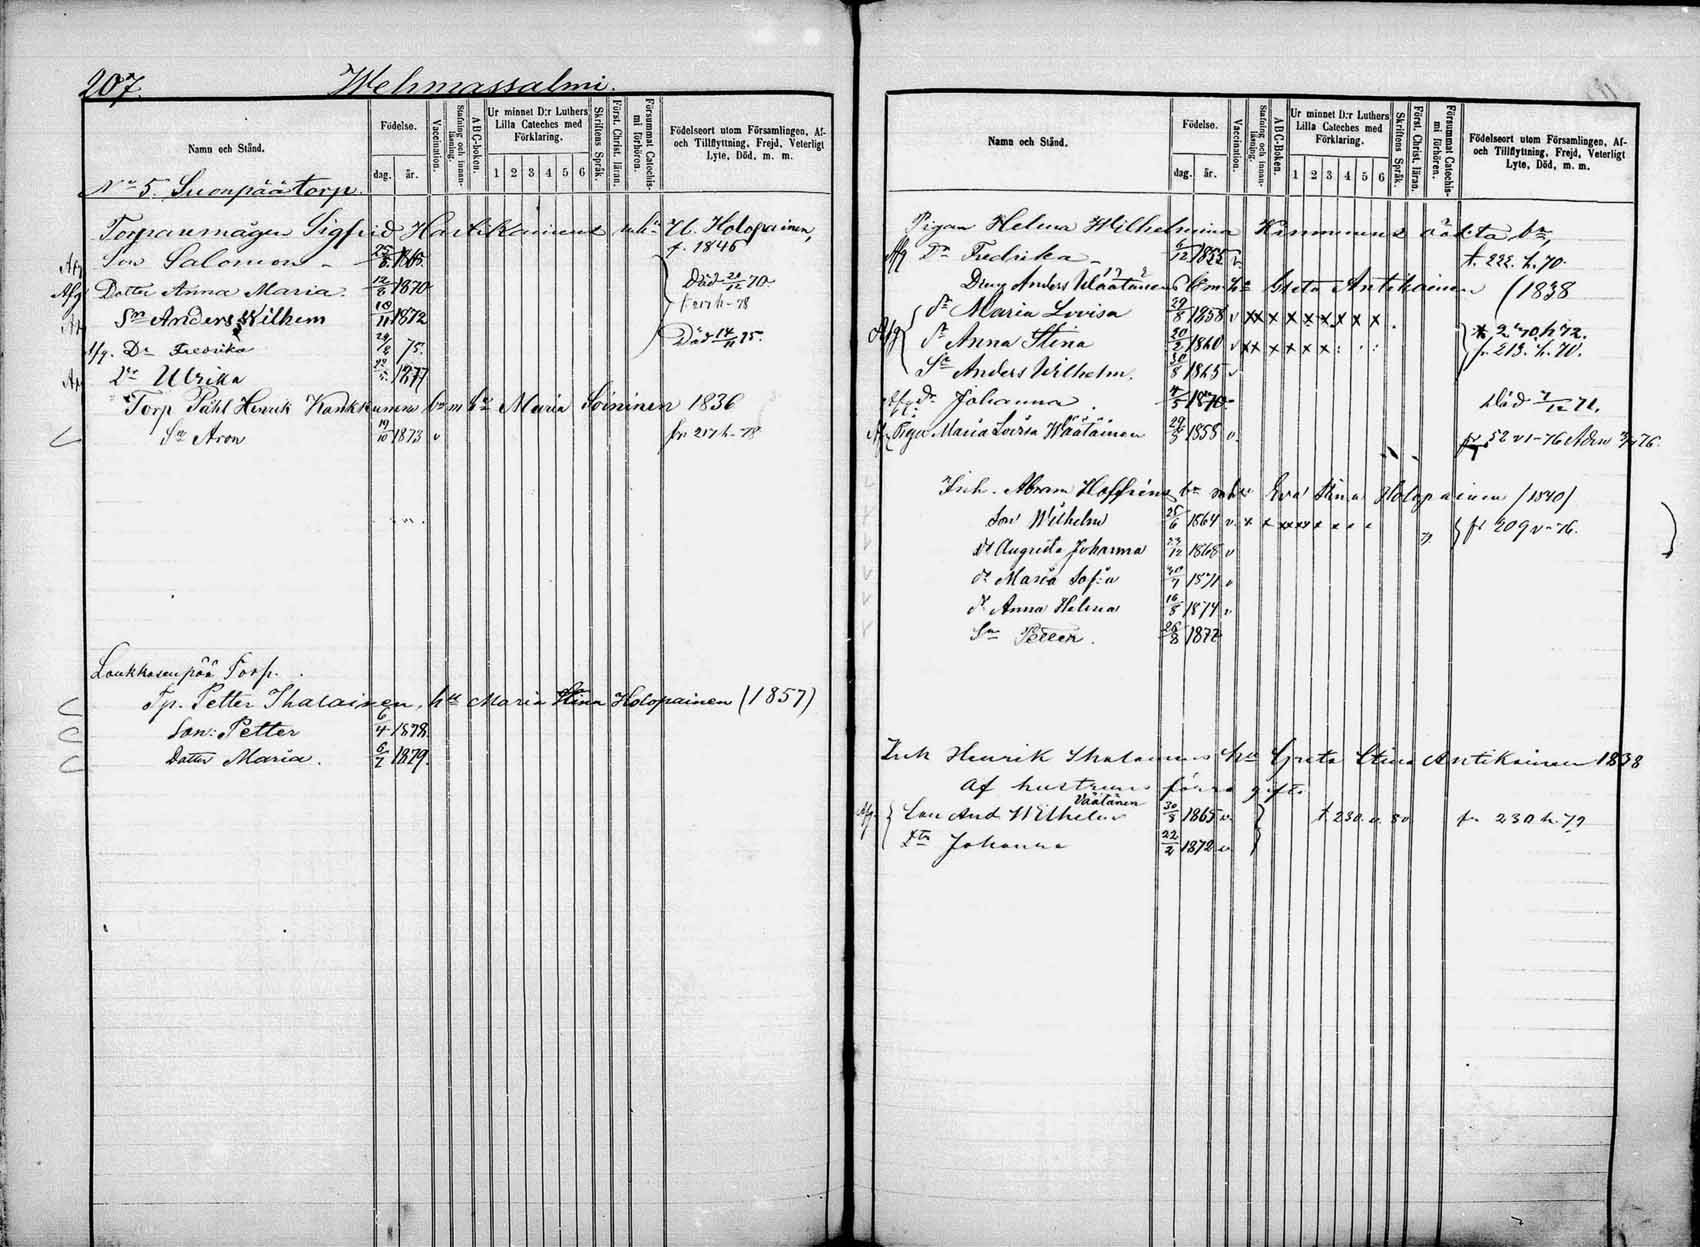 207.
Wehmassalmi.
Namn och Stånd.
Födelse.
dag. år.
Vaccination.
Stafning och innanläsning.
ABC-boken.
Ur minnet D:r Luthers Lilla Cateches med Förklaring.
1 2 3 4 5 6
Skriftens Språk.
Först. Christ. läran.
Försummat Catechismi förhören.
Födelseort utom Församlingen, Af- och Tillflyttning, Frejd, Veterligt Lyte, Död, m. m.
No 5. Suonpää torp.
Torparemågen Sigfrid Hartikainens U. Holopainen,
Son Salomon 25/5 1865. f. 1846
Afg Dotter Anna Maria. 12/8 1870 Död 20/12 70
Sn Anders Wilhem 10/11 1872 fr 217 h-78
Afg. Dr Fredrika 24/2 75. Död 14/11 75.
Dr Ulrika 1877
Torp Påhl Henrik Kankkunen bn m hu Maria Soininen 1836
Sn Aron 19/10 1873 v fr 217 h-78
Loukkosenpää Torp.
Tp. Petter Ihalainen, hu Maria Stina Holopainen (1857)
Son: Petter 6/4 1878
Dotter Maria. 6/7 1879.
Namn och Stånd.
Födelse.
dag. år.
Vaccination.
Stafning och innanläsning.
ABC-Boken.
Ur minnet D:r Luthers Lilla Cateches med Förklaring.
1 2 3 4 5 6
Skriftens Språk.
Först. Christ. läran.
Försummat Catechismi förhören.
Födelseort utom Församlingen, Af- och Tillflyttning, Frejd, Veterligt Lyte, Död, m. m.
Pigan Helena Wilhelmina Kinnunens oäkta bn,
Afg Dr Fredrika 6/12 1855 v. t. 222. h. 70.
Dräng Anders Wäätäinens bn m. hu Greta Antikainen (1838
Dr Maria Lovisa 29/8 1858 v x x x x x x x x x
Afg Dr Anna Stina 20/2 1860 v x x x x x x fr. 213. h. 70.
Sn Anders Wilhelm. 30/8 1865 v
Afg Dr Johanna 4/5 1870 Död 7/12 71.
Piga Maria Lovisa Wäätäinen 29/5 1858 v. fr 52 v1-76
Inh. Abram Hoffréns bn m hu Eva Stina Holopainen (1840)
Son Wilhelm 25/6 1864 v x x x x x x x x fr 209 v-76.
Dr Augusta Johanna 23/12 1868 v
dr Maria Sofia 30/7 1871 v
dr Anna Helena 16/5 1874 v
Sn Petter. 26/8 1877
Inh Henrik Ihalainens hu Greta Stina Antikainen 1838
af hustruns förra gifte
Väätänen
Afg. Son And Wilhelm 30/8 1865 v. t. 230. v. 80. fr 230 h. 79
Dtr Johanna 22/2 1872 v